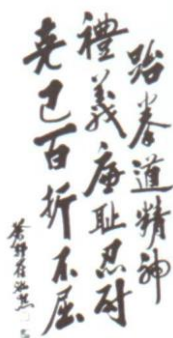 跆拳道精神
禮義廉恥忍耐
克己百折不屈
蒼軒崔泓熙